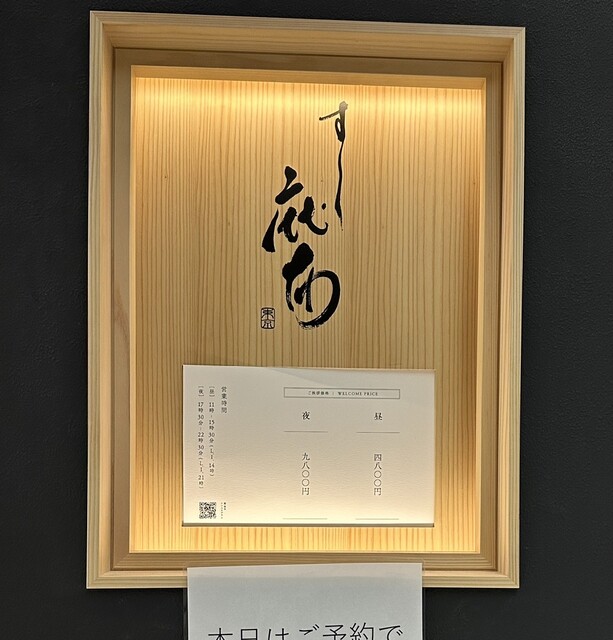 すし
麻布
東京
ご挨拶価格 | WELCOME PRICE
昼
四八〇〇円
夜
九八〇〇円
営業時間
[昼] 11時 - 15時30分(L.L. 14時)
[夜] 17時30分 - 22時30分(L.L. 21時)
本日はご予約で